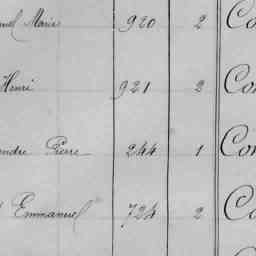 Marie 920 2 Co
Henri 921 2 Con
Pierre 244 1 Con
Emmanuel 724 2 Co